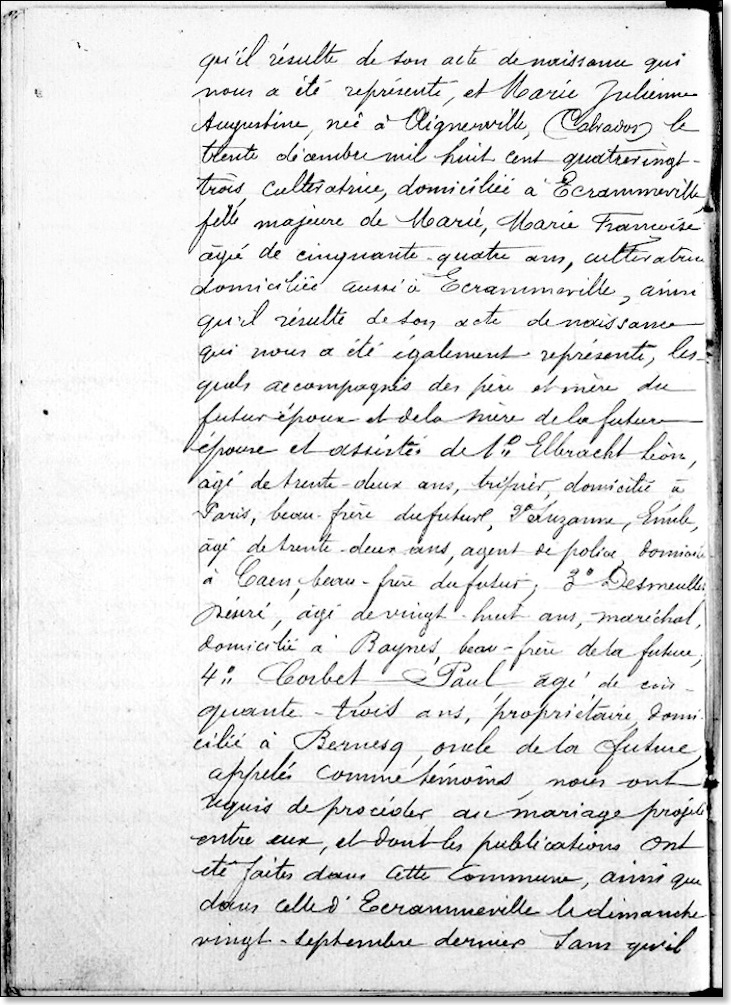 qu'il résulte de son acte de naissance qui
nous a été représenté, et Marie Julienne
Augustine, née à Aignerville, (Calvados) le
trente décembre mil huit cent quatrevingt-
trois, cultivatrice, domiciliée à Ecrammeville,
fille majeure de Marie, Marie Françoise
âgée de cinquante-quatre ans, cultivatrice
domiciliée aussi à Ecrammeville, ainsi
qu'il résulte de son acte de naissance
qui nous a été également représenté, les-
quels accompagnés des père et mère du
futur époux et de la mère de la future
épouse et assistés de 1º Elbracht Léon,
âgé de trente-deux ans, tripier, domicilié à
Paris, beau-frère du futur, 2º Suzanne, Emile,
âgé de trente-deux ans, agent de police, domicilié
à Caen, beau-frère du futur; 3º Desmeulles
Désiré, âgé de vingt-huit ans, maréchal,
domicilié à Baynes, beau-frère de la future;
4º Corbet Paul, âgé de cin-
quante-trois ans, propriétaire, domi-
cilié à Bernesq, oncle de la future,
appelés comme témoins, nous ont
requis de procéder au mariage projeté
entre eux, et dont les publications ont
été faites dans cette commune, ainsi que
dans celle d'Ecrammeville le dimanche
vingt-septembre dernier sans qu'il